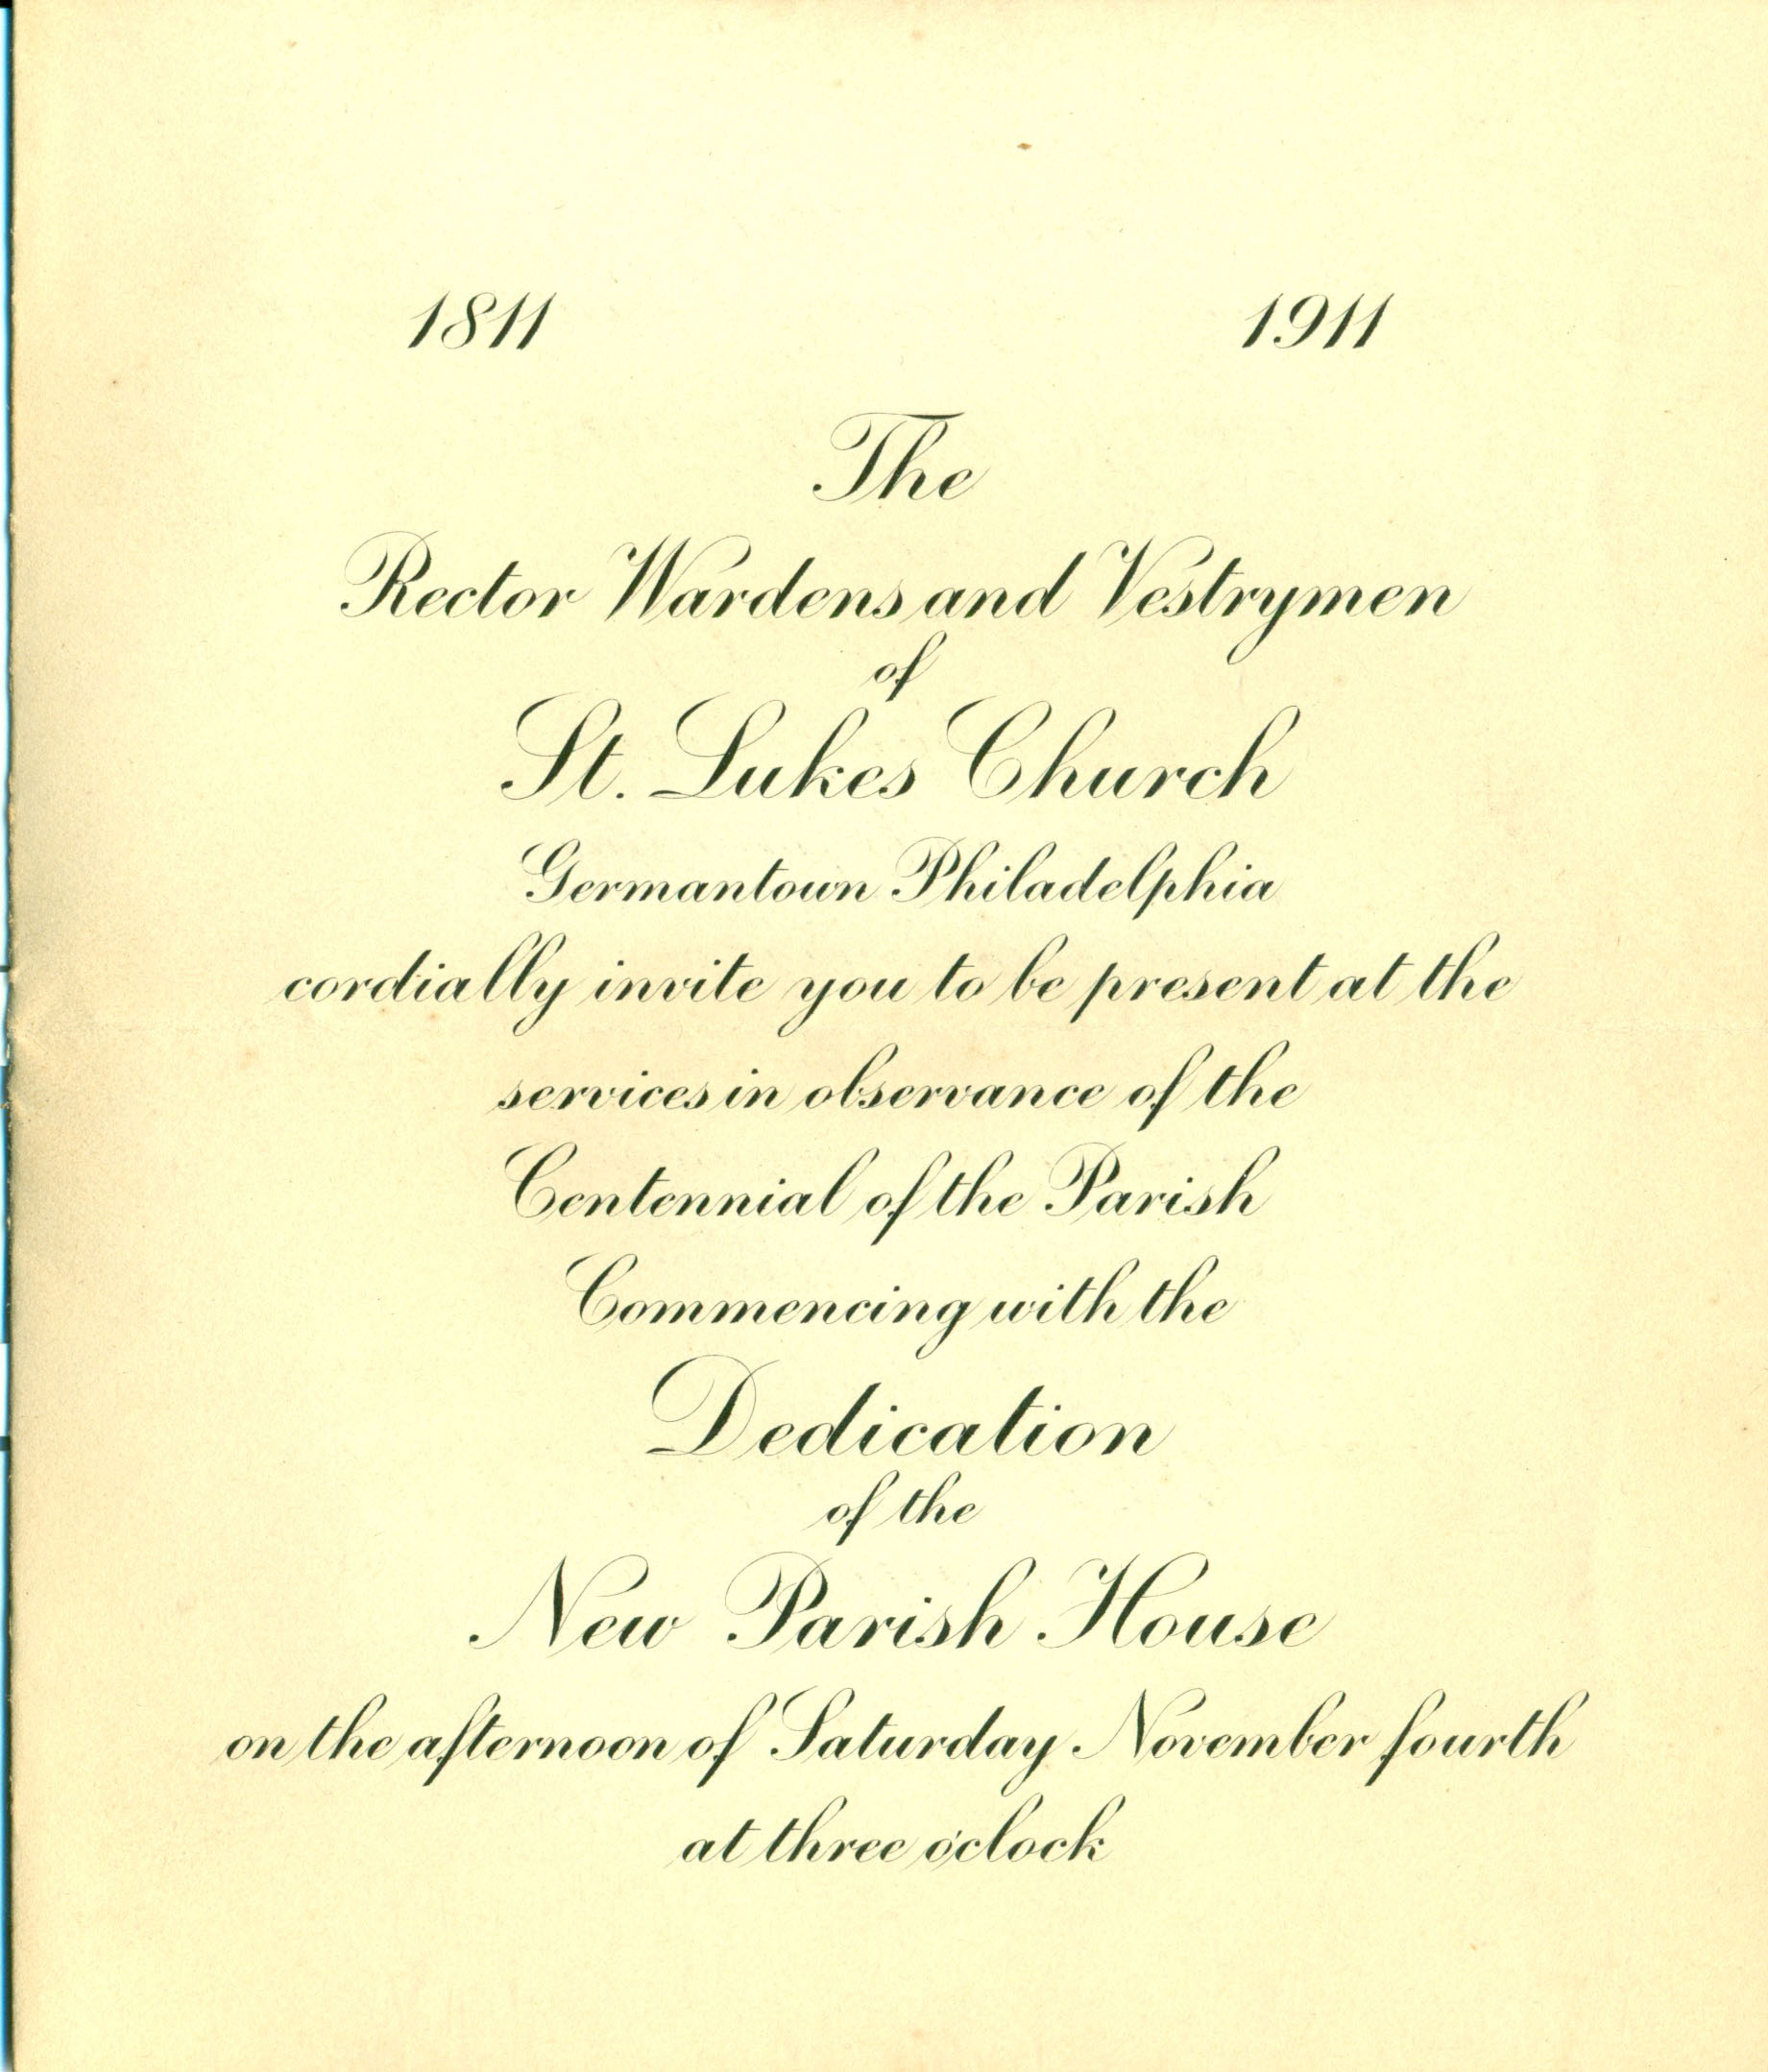 1811 1911
The
Rector Wardens and Vestrymen
of
St. Lukes Church
Germantown Philadelphia
cordially invite you to be present at the
services in observance of the
Centennial of the Parish
Commencing with the
Dedication
of the
New Parish House
on the afternoon of Saturday November fourth
at three o'clock